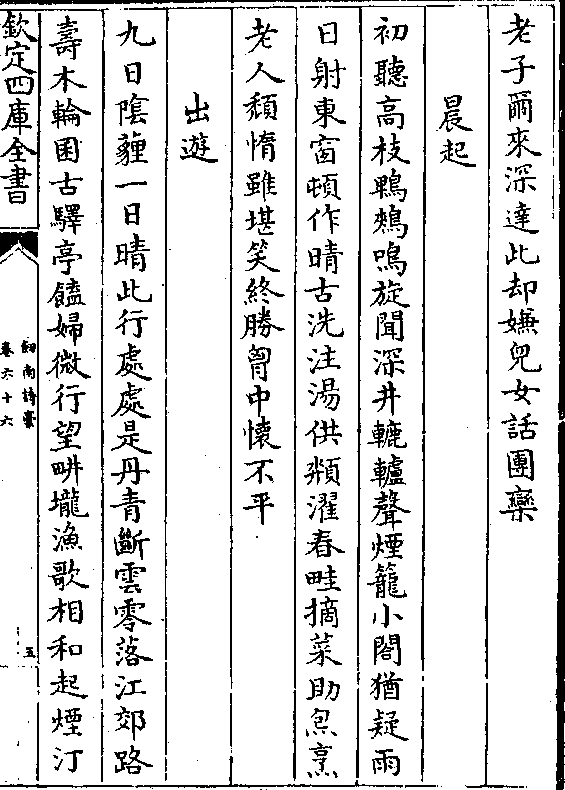 老子爾來深達此却嫌兒女話團欒
晨起
初聽高枝鵯鵊鳴旋聞深井轆轤聲煙籠小閤猶疑雨
日射東窗頓作晴古洗注湯供頮濯春畦摘菜助炰烹
老人頹惰雖堪笑終勝胷中懷不平
出遊
九日陰霾一日晴此行處處是丹青斷雲零落江郊路
壽木輪囷古驛亭饁婦微行望畊壠漁歌相和起煙汀
欽定四庫全書
劒南詩稾
卷六十六
五